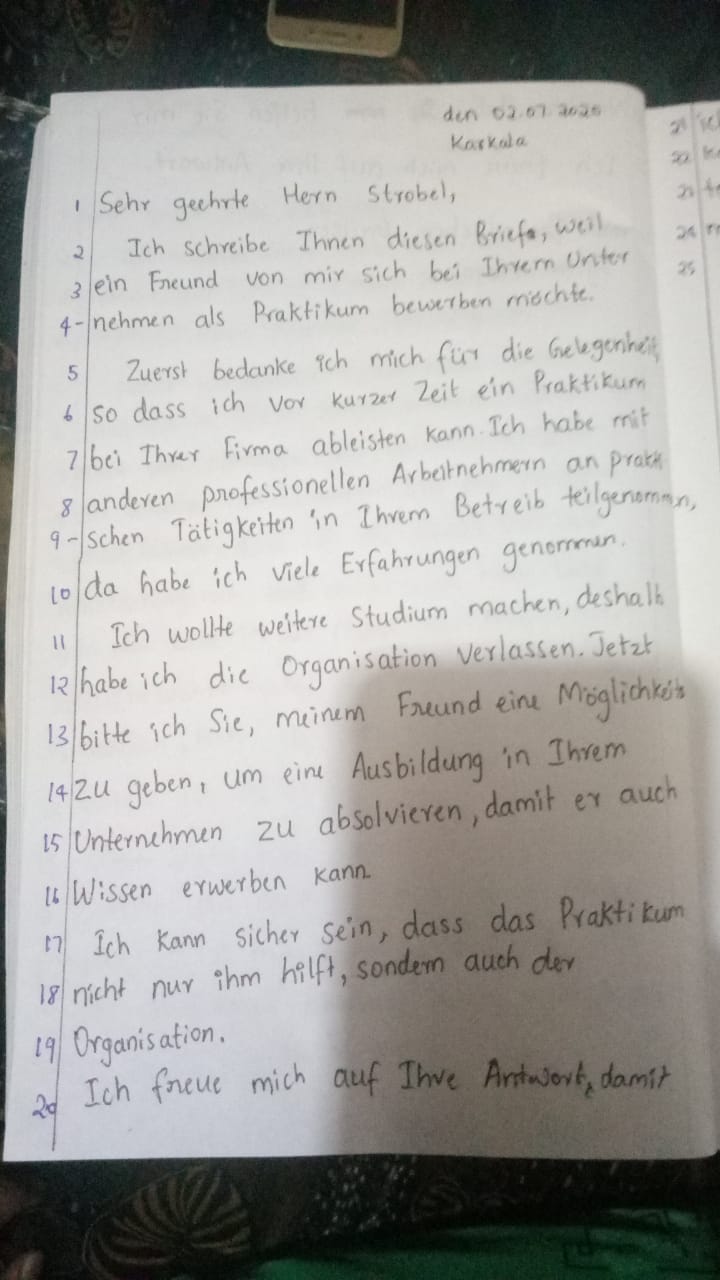 den 02.07.2025
Karkala
1 Sehr geehrte Herrn Strobel,
2 Ich schreibe Ihnen diesen Briefe, weil
3 ein Freund von mir sich bei Ihrem Unter
4 - nehmen als Praktikum bewerben möchte.
5 Zuerst bedanke ich mich für die Gelegenheit,
6 so dass ich vor kurzer Zeit ein Praktikum
7 bei Ihrer Firma ableisten kann. Ich habe mit
8 anderen professionellen Arbeitnehmern an prakti
9 - schen Tätigkeiten in Ihrem Betreib teilgenommen,
10 da habe ich viele Erfahrungen genommen.
11 Ich wollte weitere Studium machen, deshalb
12 habe ich die Organisation verlassen. Jetzt
13 bitte ich Sie, meinem Freund eine Möglichkeit
14 zu geben, um eine Ausbildung in Ihrem
15 Unternehmen zu absolvieren, damit er auch
16 Wissen erwerben kann
17 Ich kann sicher sein, dass das Praktikum
18 nicht nur ihm hilft, sondern auch der
19 Organisation.
20 Ich freue mich auf Ihre Antwort, damit
21
22
24
25